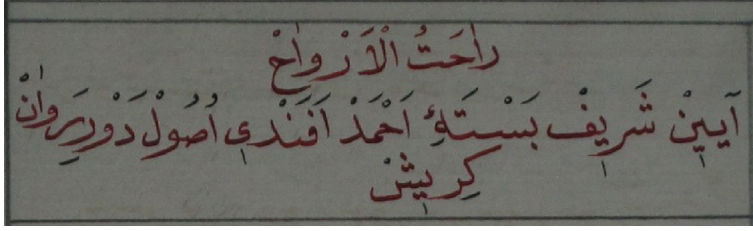 رَاحَتُ الْاَرْوَاحْ
آيِينْ شَرِيفْ بَسْتَهٔ اَحْمَدْ اَفَنْدِى اُصُولْ دَوْرِيرَوَانْ
كِرِيشْ